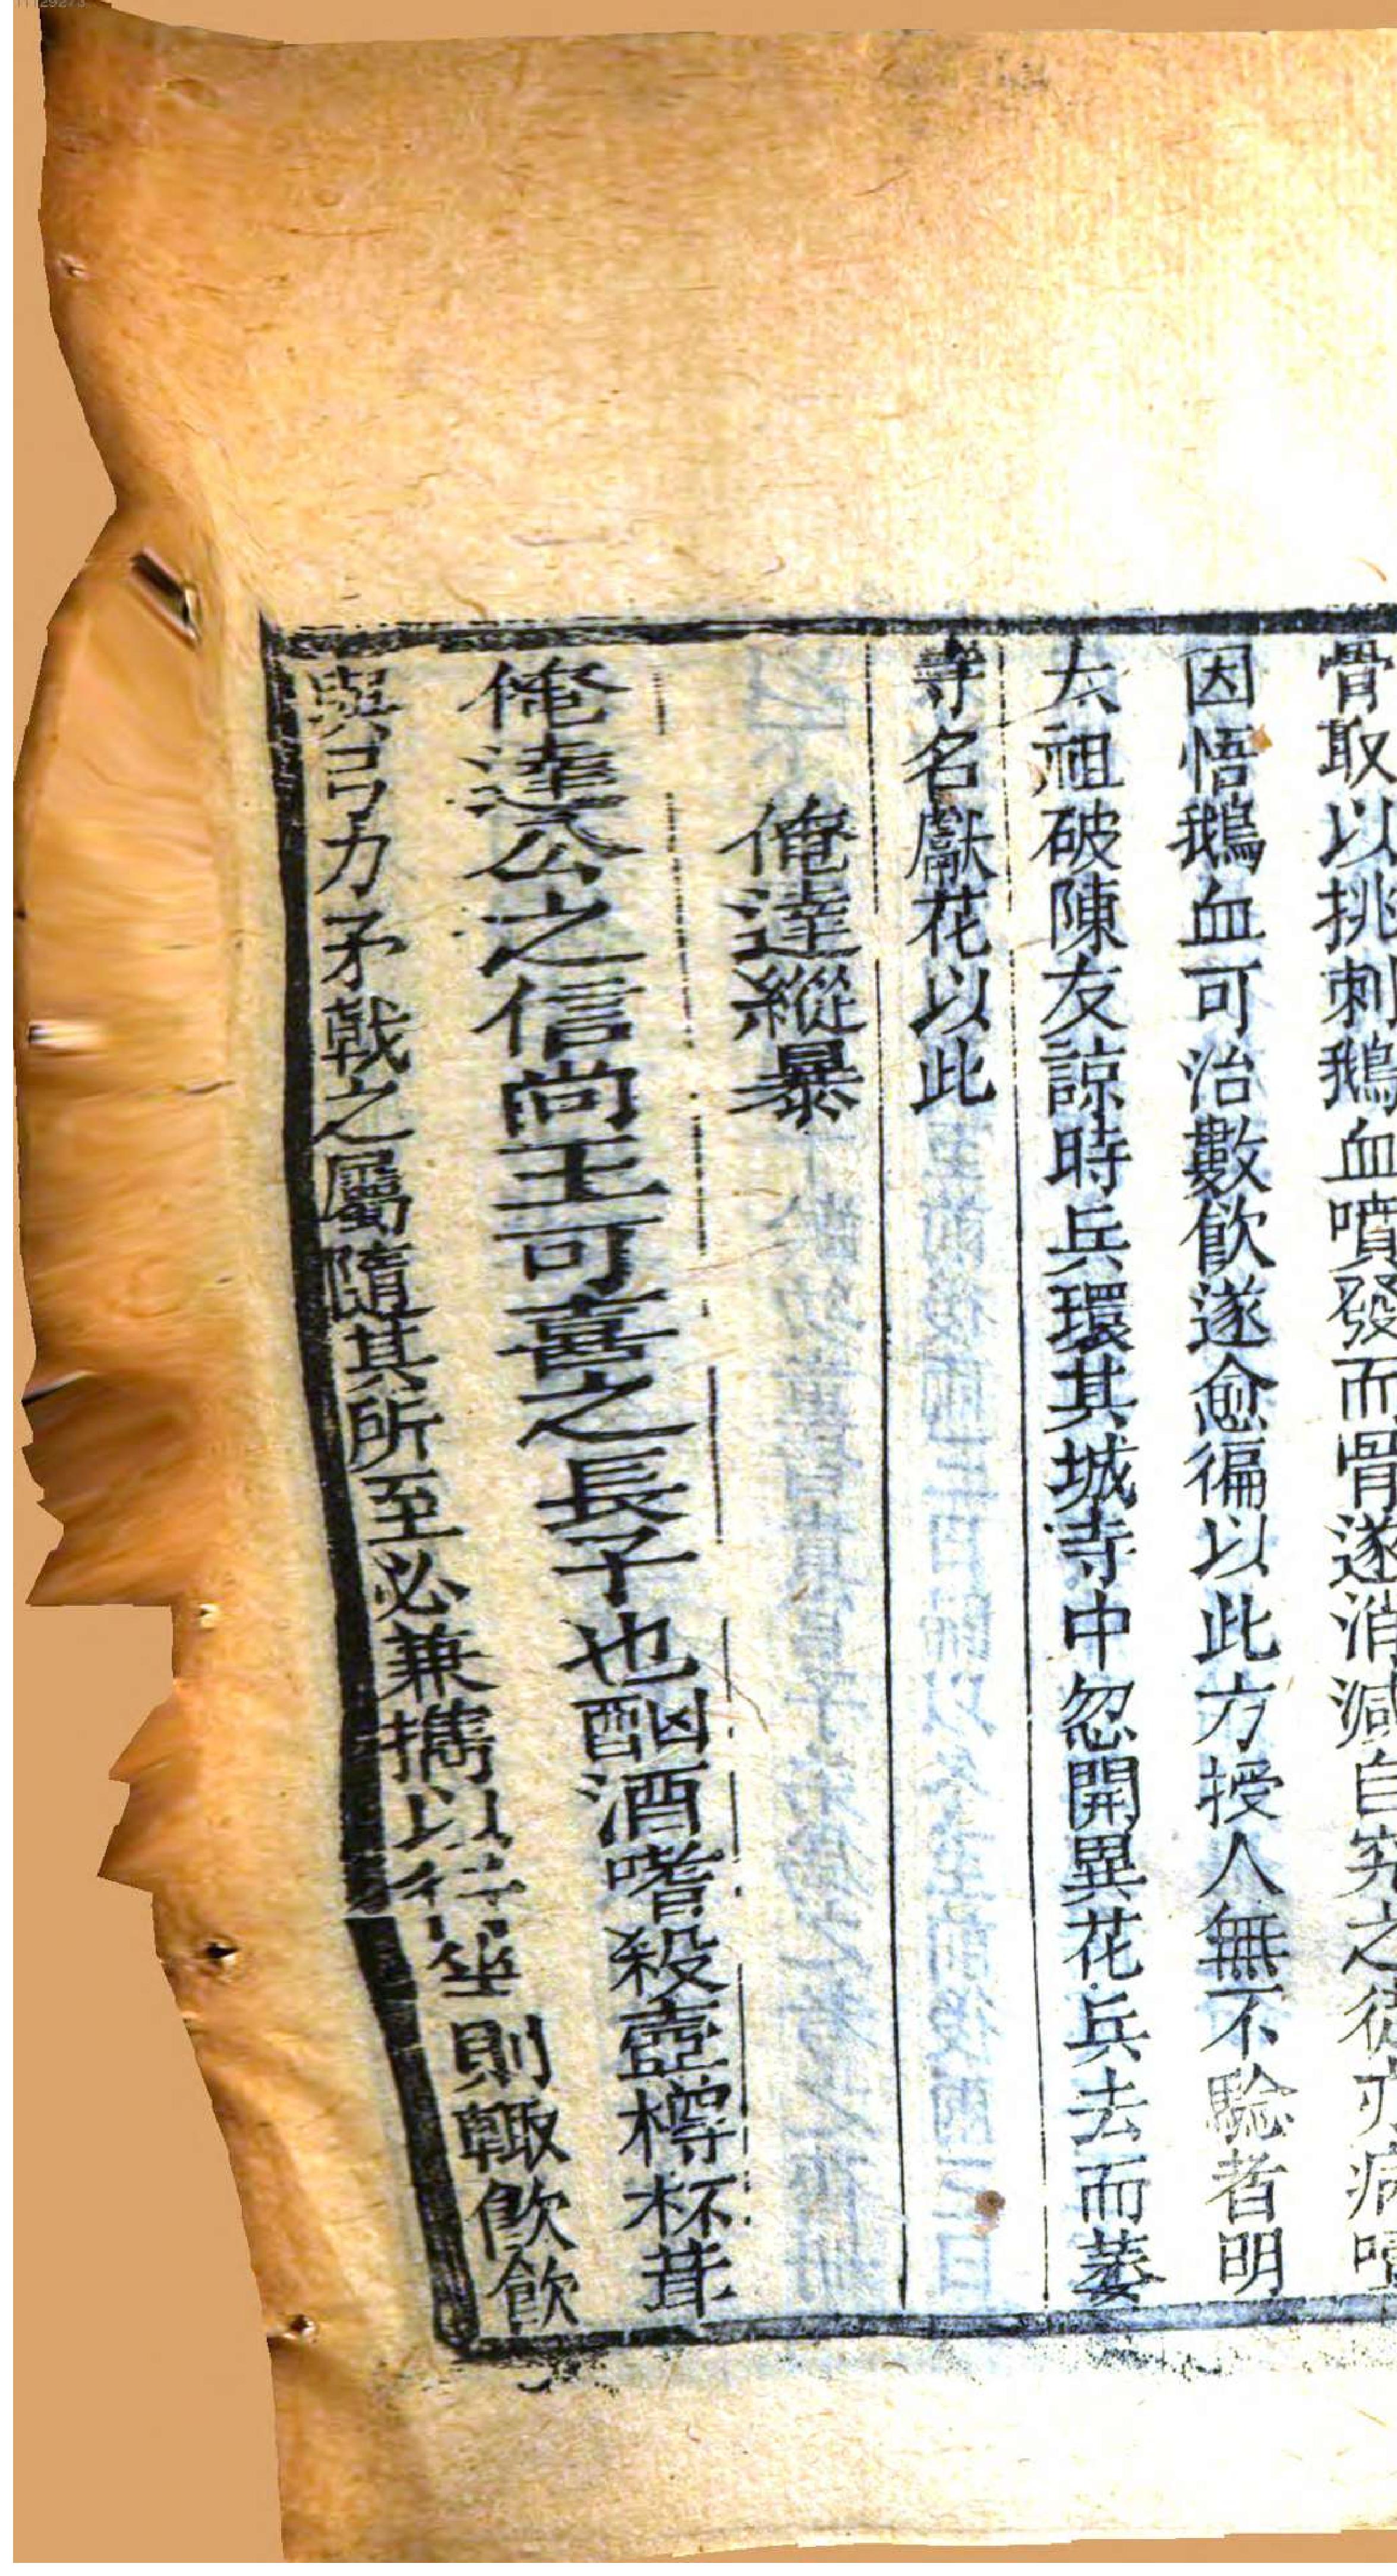 骨取以挑刺鵝血噴發而骨遂消滅自究之後亦病噎
因悟鵝血可治數飲遂愈徧以此方授人無不騐者明
太祖破陳友諒時兵環其城寺中忽開異花兵去而萎
寺名獻花以此
俺達縱暴
俺達公之信尚王可喜之長子也酗酒嗜殺壺樽杯斝
與弓刀矛戟之屬隨其所至必兼攜以行坐則輙飲飲
11129273